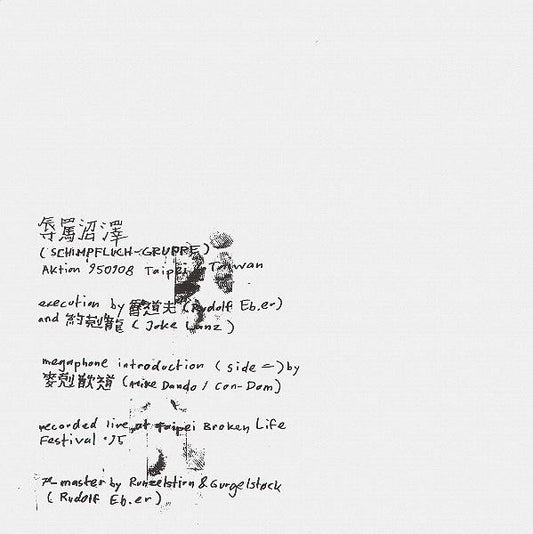 辱罵沼澤
(SCHIMPFLUCH-GRUPPE)
Aktion 950908 Taipei, Taiwan
execution by 魯道夫 (Rudolf Eb.er)
and 約剋龍 (Joke Lanz)
megaphone introduction (side 二) by
麥剋 (Mike Dando / Con-Dom)
recorded live at Taipei Broken Life
Festival '95
master by Runzelstirn & Gurgelstøck
(Rudolf Eb.er)